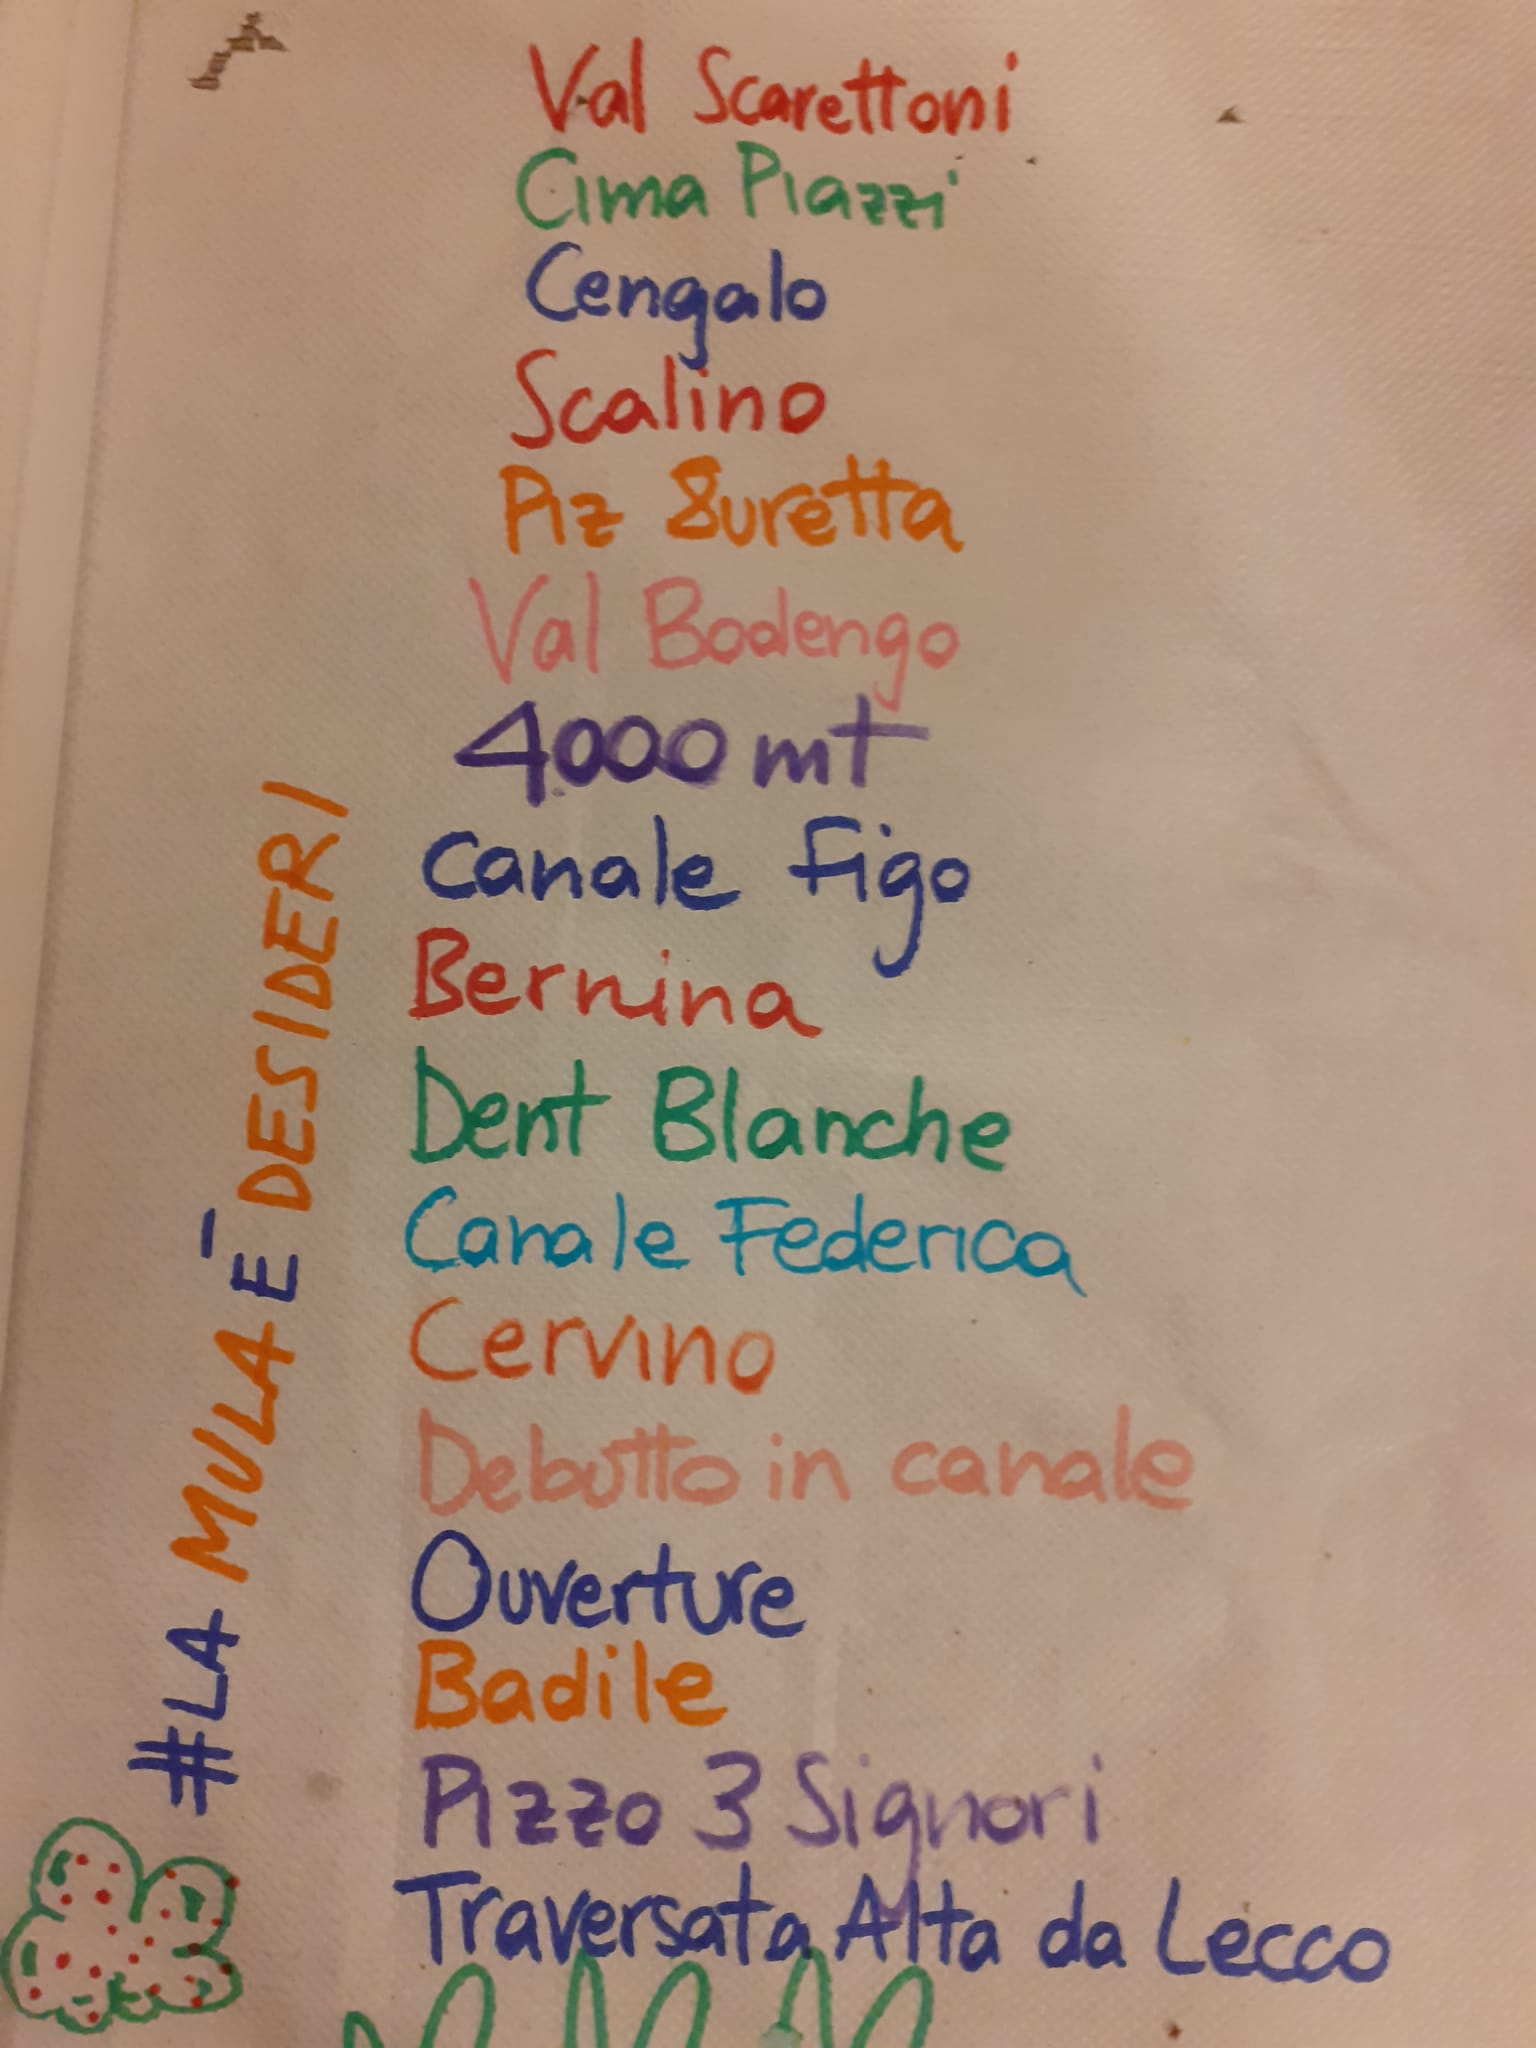 Val Scarettoni
Cima Piazzi
Cengalo
Scalino
Piz Suretta
Val Bodengo
4.000 mt
Canale Figo
Bernina
Dent Blanche
Canale Federica
Cervino
Debutto in canale
Ouverture
Badile
Pizzo 3 Signori
Traversata Alta da Lecco
#LA MULA È DESIDERI